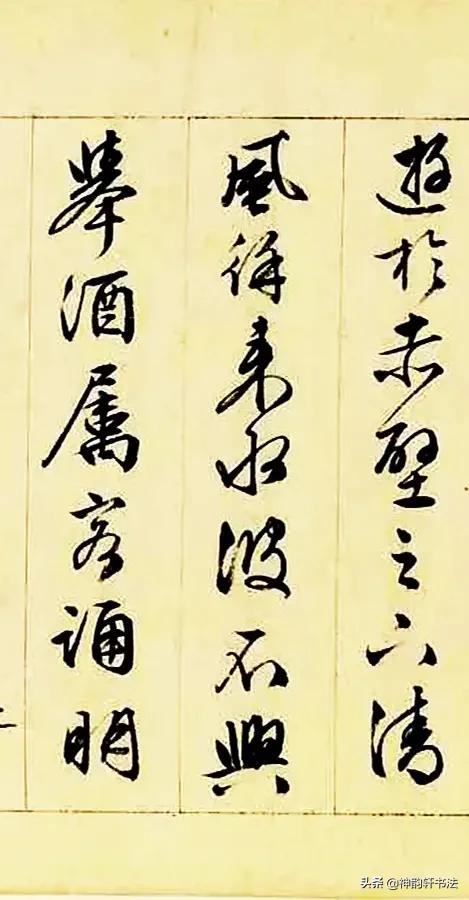 遊於赤壁之下清
風徐来水波不興
舉酒属客誦明
头条@神韵轩书法